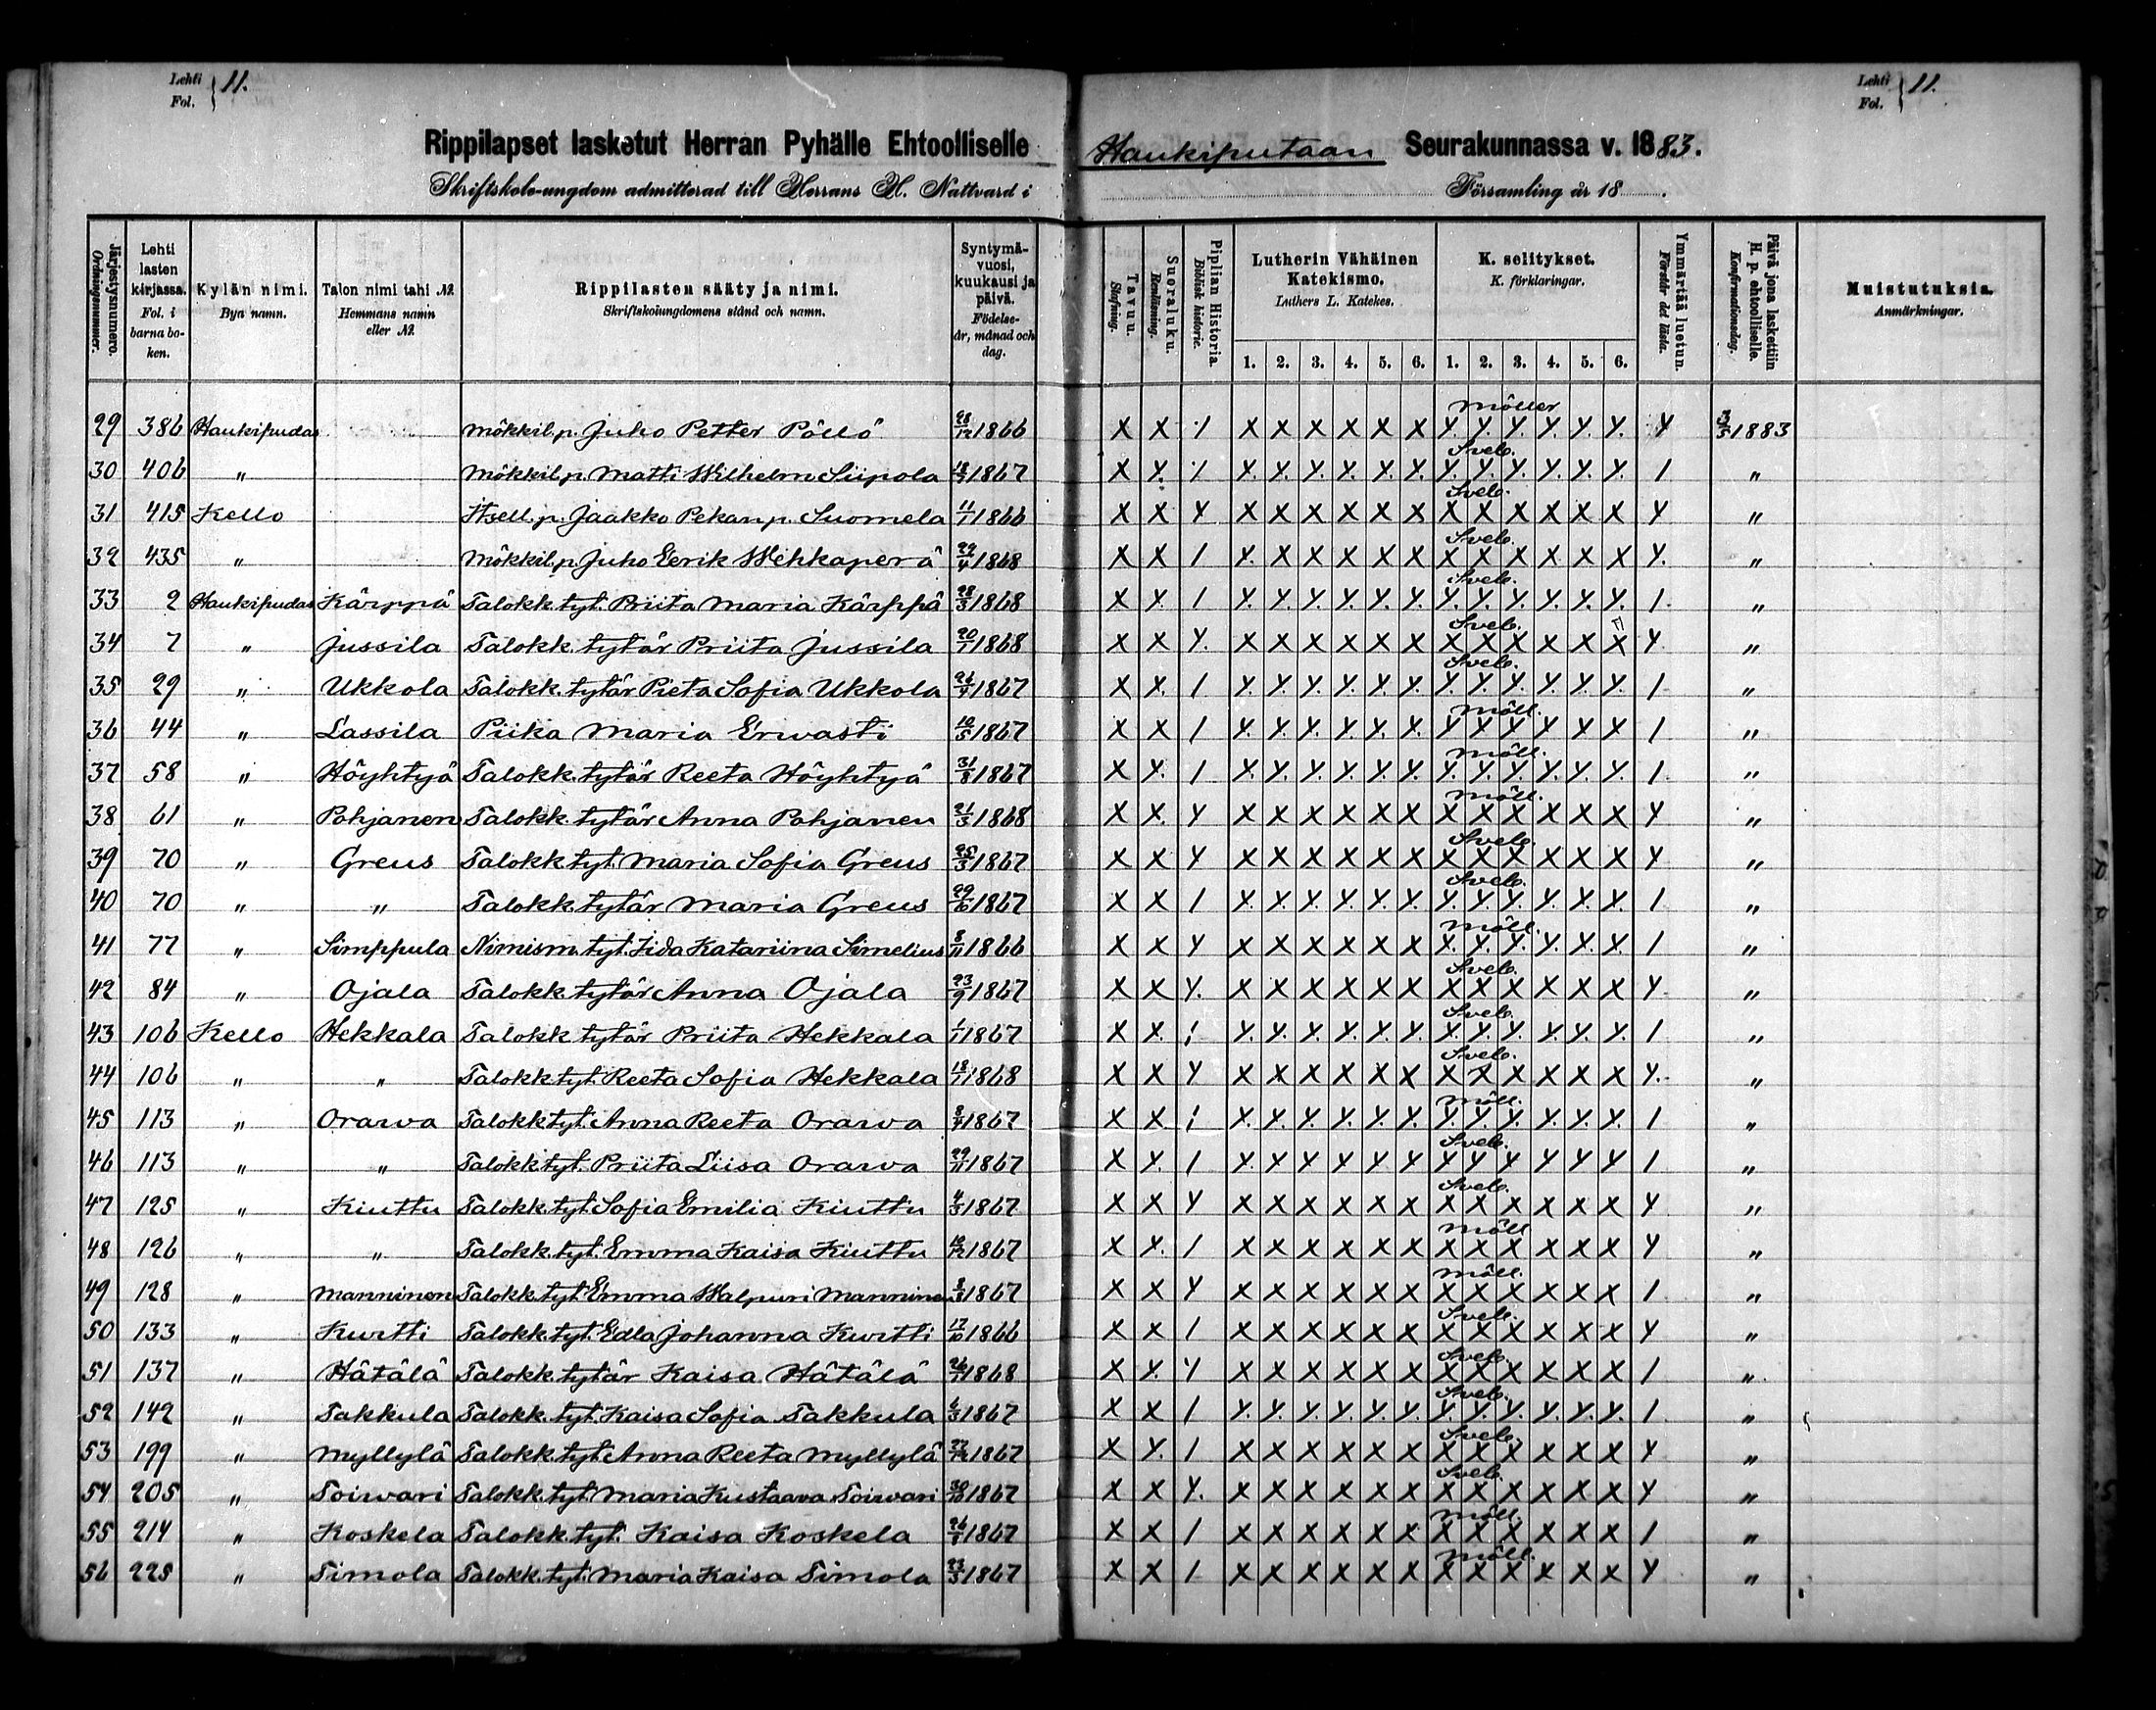 Lehti Fol. } 11.
Lehti Fol. } 11.
Rippilapset lasketut Herran Pyhälle Ehtoolliselle Haukiputaan Seurakunnassa v. 1883.
Skriftskole-ungdom admitterad till Herrans H. Nattvard i Församling år 18 .
Järjestysnumero. Ordningsnummer.
Lehti lasten kirjassa. Fol. i barna boken.
Kylän nimi. Bya namn.
Talon nimi tahi №. Hemmans namn eller №.
Rippilasten sääty ja nimi. Skriftskolungdomens stånd och namn.
Syntymävuosi, kuukausi ja päivä. Födelseår, månad och dag.
Tavuu. Stafning.
Suoraluku. Renläsning.
Piplian Historia. Biblisk historie.
Lutherin Vähäinen Katekismo. Luthers L. Katekes.
1. 2. 3. 4. 5. 6.
K. selitykset. K. förklaringar.
1. 2. 3. 4. 5. 6.
Ymmärtää luetun. Förstår det lästa.
Päivä jona laskettiin H. p. ehtoolliselle. Konfirmationsdag.
Muistutuksia. Anmärkningar.
29 386 Haukipudas Mökkil.p. Juho Petter Pöllö 28/12 1866 Möller 3/5 1883
30 406 " Mökkil.p. Matti Wilhelm Siipola 1867 Sveb. "
31 415 Kello Itsell.p. Jaakko Pekanp. Suomela 11/1 1866 Sveb. "
32 435 " Mökkil.p. Juho Eerik Wehkaperä 22/4 1868 Sveb. "
33 2 Haukipudas Kärppä Talokk.tyt. Priita Maria Kärppä 28/3 1868 Sveb. "
34 7 " Jussila Talokk. tytär Priita Jussila 20/1 1868 Sveb. "
35 29 " Ukkola Talokk. tytär Reeta Sofia Ukkola 1867 Sveb. "
36 44 " Lassila Piika Maria Erwasti 10/5 1867 Möll. "
37 58 " Höyhtyä Talokk. tytär Reeta Höyhtyä 31/8 1867 Möll. "
38 61 " Pohjanen Talokk. tytär Anna Pohjanen 21/3 1868 Möll. "
39 70 " Greus Talokk tyt. Maria Sofia Greus 25/3 1867 Sveb. "
40 70 " " Talokk. tytär Maria Greus 29/10 1867 Sveb. "
41 77 " Simppula Nimism. tyt. Iida Katariina Simelius 8/11 1866 Möll. "
42 84 " Ojala Talokk tytär Anna Ojala 23/9 1867 Sveb. "
43 106 Kello Hekkala Talokk tytär Priita Hekkala 1/1 1867 Sveb. "
44 106 " " Talokk tyt. Reeta Sofia Hekkala 18/1 1868 Sveb. "
45 113 " Orawa Talokk tyt. Anna Reeta Orawa 8/7 1867 Möll. "
46 113 " " Talokk tyt. Priita Liisa Orawa 29/11 1867 Sveb. "
47 125 " Kiuttu Talokk. tyt. Sofia Emilia Kiuttu 4/5 1867 Sveb. "
48 126 " " Talokk. tyt. Emma Kaisa Kiuttu 10/12 1867 Möll "
49 128 " Manninen Talokk. tyt. Emma Walpuri Manninen 1867 Möll. "
50 133 " Kurtti Talokk tyt. Edla Johanna Kurtti 17/10 1866 Sveb. "
51 137 " Hätälä Talokk. tytär Kaisa Hätälä 26/1 1868 Sveb. "
52 142 " Takkula Talokk. tyt. Kaisa Sofia Takkula 6/3 1867 Sveb. "
53 199 " Myllylä Talokk. tyt. Anna Reeta Myllylä 1867 Sveb. "
54 205 " Toiwari Talokk. tyt. Maria Kustaava Toiwari 30/10 1867 Sveb. "
55 214 " Koskela Talokk. tyt. Kaisa Koskela 1867 Möll. "
56 225 " Timola Talokk. tyt. Maria Kaisa Timola 23/3 1867 Möll. "